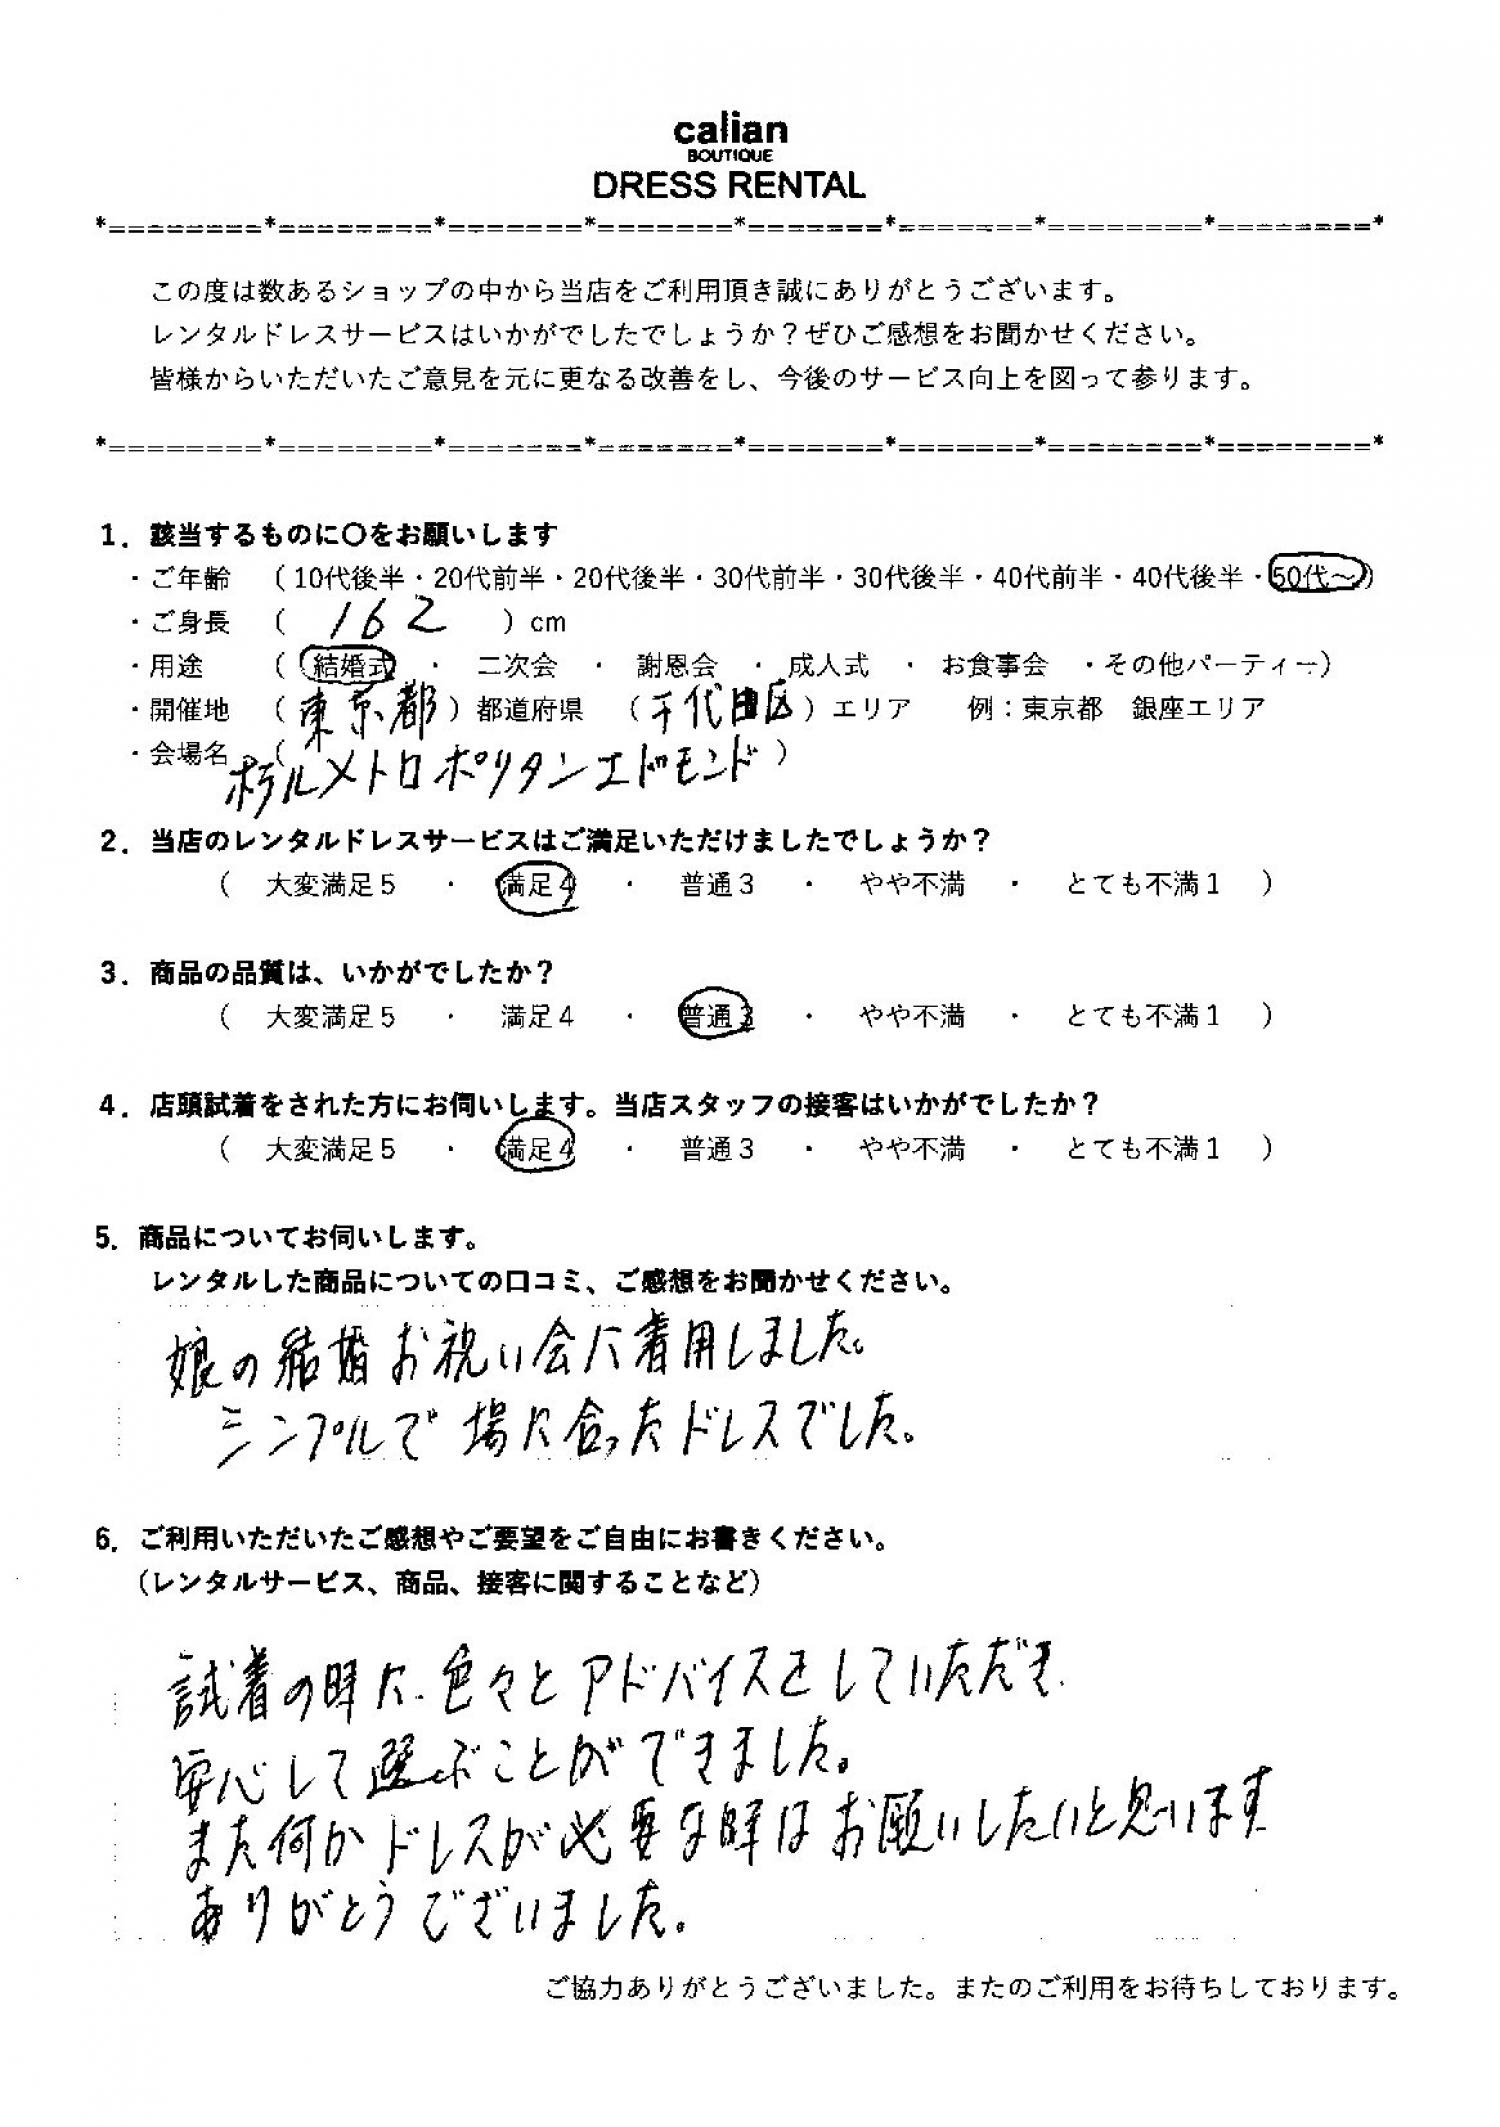 calian
BOUTIQUE
DRESS RENTAL
*=========*=========*=======*=======*=======*=======*========*========*
この度は数あるショップの中から当店をご利用頂き誠にありがとうございます。
レンタルドレスサービスはいかがでしたでしょうか？ぜひご感想をお聞かせください。
皆様からいただいたご意見を元に更なる改善をし、今後のサービス向上を図って参ります。
*=========*=========*=======*=======*=======*=======*========*========*
1．該当するものに〇をお願いします
・ご年齢 （10代後半・20代前半・20代後半・30代前半・30代後半・40代前半・40代後半・50代～）
・ご身長 （ 162 ）cm
・用途 （ 結婚式 ・ 二次会 ・ 謝恩会 ・ 成人式 ・ お食事会 ・その他パーティー）
・開催地 （ 東京都 ）都道府県 （ 千代田区 ）エリア 例：東京都 銀座エリア
・会場名 （ ホテルメトロポリタンエドモンド ）
2．当店のレンタルドレスサービスはご満足いただけましたでしょうか？
（ 大変満足5 ・ 満足4 ・ 普通3 ・ やや不満 ・ とても不満1 ）
3．商品の品質は、いかがでしたか？
（ 大変満足5 ・ 満足4 ・ 普通3 ・ やや不満 ・ とても不満1 ）
4．店頭試着をされた方にお伺いします。当店スタッフの接客はいかがでしたか？
（ 大変満足5 ・ 満足4 ・ 普通3 ・ やや不満 ・ とても不満1 ）
5．商品についてお伺いします。
レンタルした商品についての口コミ、ご感想をお聞かせください。
娘の結婚お祝い会に着用しました。
シンプルで場に合ったドレスでした。
6．ご利用いただいたご感想やご要望をご自由にお書きください。
（レンタルサービス、商品、接客に関することなど）
試着の時に、色々とアドバイスをしていただき、
安心して選ぶことができました。
また何かドレスが必要な時はお願いしたいと思います
ありがとうございました。
ご協力ありがとうございました。またのご利用をお待ちしております。